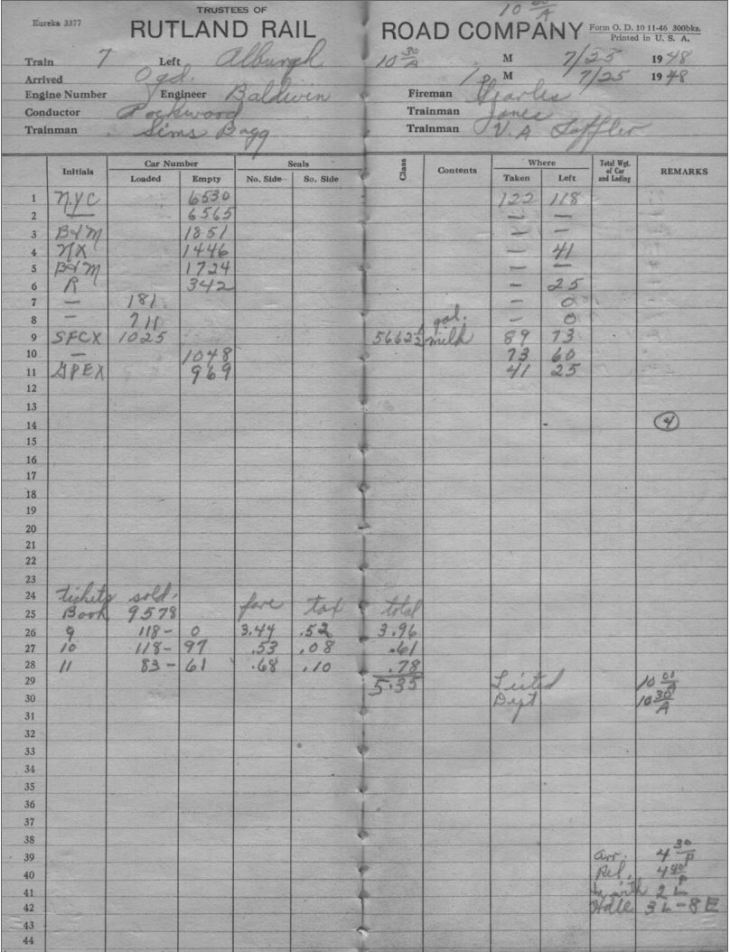 10 00/A
TRUSTEES OF
Eureka 3377
RUTLAND RAIL ROAD COMPANY
Form O. D. 10 11-46 300bks.
Printed in U. S. A.
Train 7 Left Alburgh 10 30/A M 7/25 1948
Arrived Ogd. 1 P M 7/25 1948
Engine Number Engineer Baldwin Fireman Charles
Conductor Rockwood Trainman Jones
Trainman Sims Bagg Trainman V.A
Initials Car Number Seals Class Contents Where Total Wgt. of Car and Lading REMARKS
Loaded Empty No. Side So. Side Taken Left
1 NYC 6530 122 118
2 — 6565 — —
3 B&M 1851 — —
4 NX 1446 — 41
5 B&M 1724 — —
6 R 342 — 25
7 — 181 — 0
8 — 711 gal. — 0
9 SFCX 1025 5662½ milk 89 73
10 — 1048 73 60
11 GPEX 969 41 25
12
13
14 4
15
16
17
18
19
20
21
22
23
24 tickets sold.
25 Book 9578 fare tax total
26 9 118 - 0 3.44 .52 3.96
27 10 118 - 97 .53 .08 .61
28 11 83 - 61 .68 .10 .78
29 5.35 Listed 10 01/A
30 Dept 10 30/A
31
32
33
34
35
36
37
38
39 Arr. 4 30/P
40 Rel. 4 40/P
41 with 2 L
42 Hdle 3 L - 8 E
43
44